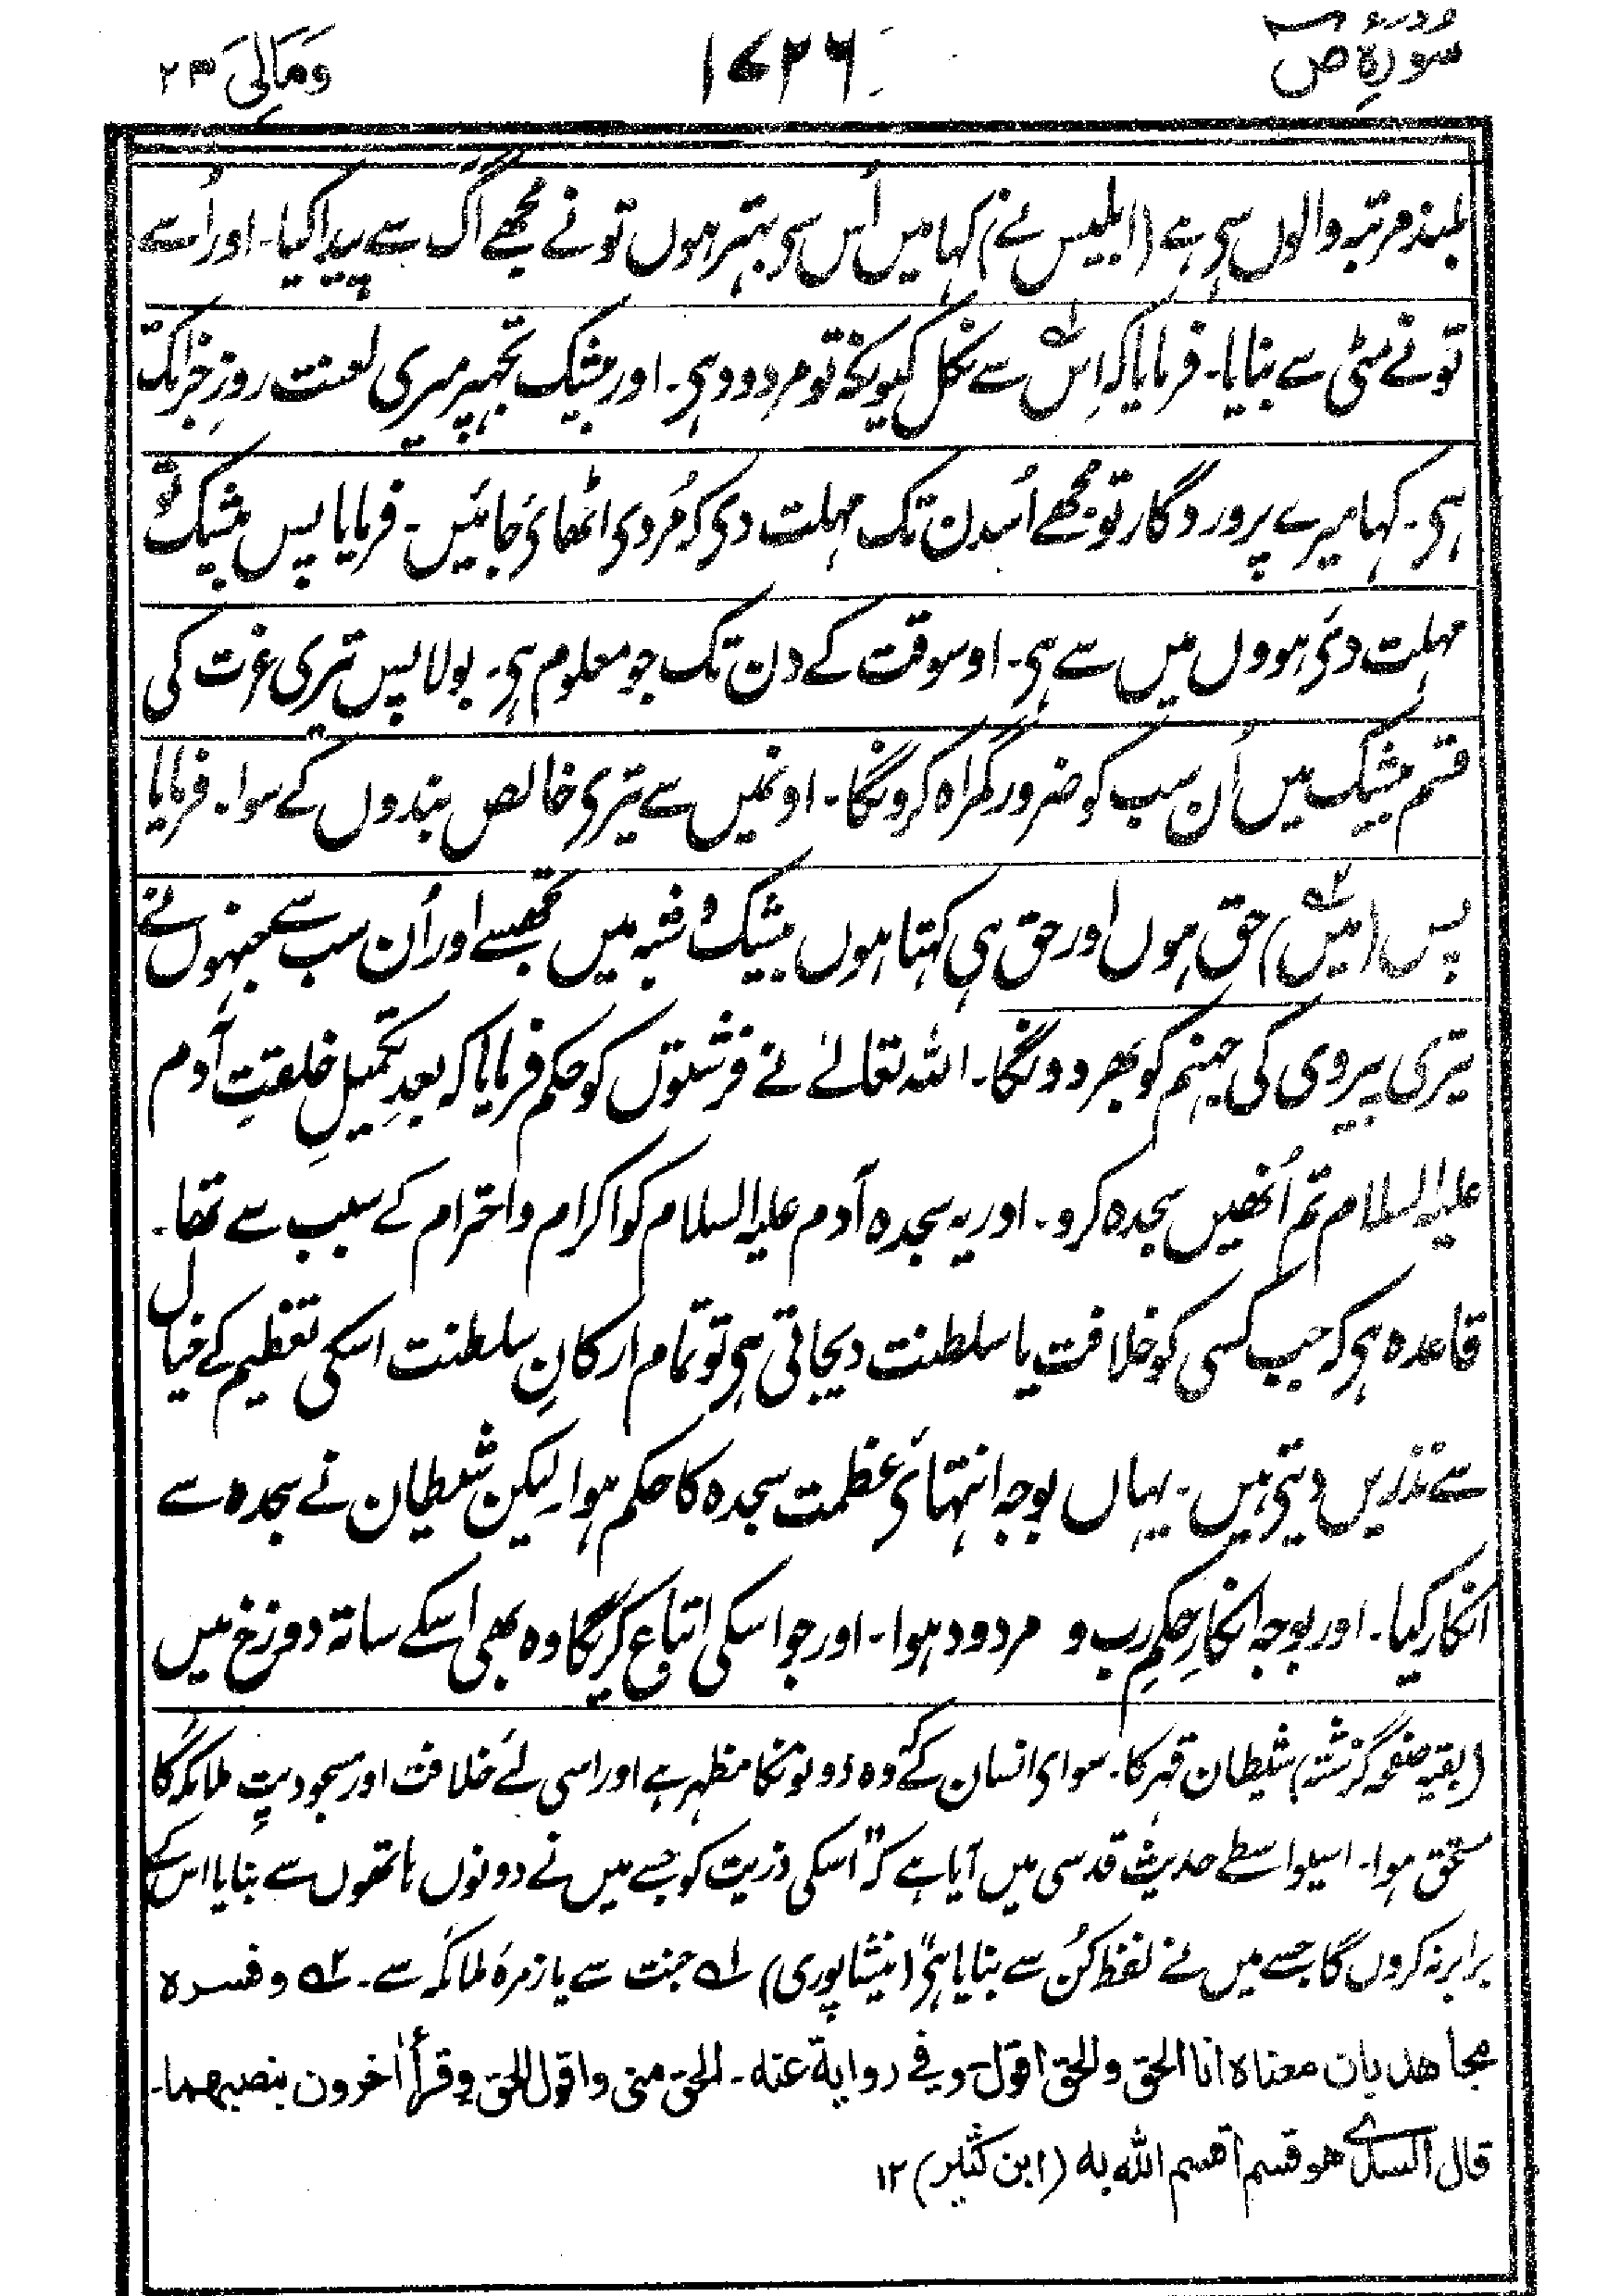 سُورۃ صٓ
۱۷۲۶
وَمَالِیَ ۲۳
بلند مرتبہ والوں سی ہے (ابلیس نے) کہا میں اُس سی بہتر ہوں تو نے مجھے آگ سے پیدا کیا۔ اور اُسے
تو نے مٹی سے بنایا۔ فرمایا کہ اِس۱؎ سے نکل کیونکہ تو مردود ہی۔ اور بیشک تجہپر میری لعنت روزِ جزا تک
ہی۔ کہا میرے پروردگار تو مجھے اُسدن تک مہلت دی کہ مُردی اٹھائی جائیں۔ فرمایا پس بیشک تو
مہلت دیٔ ہووں میں سے ہی۔ اوسوقت کے دن تک جو معلوم ہی۔ بولا پس تیری عزت کی
قسم بیشک میں اُن سب کو ضرور گمراہ کرونگا۔ اونمیں سے تیری خالص بندوں کے سوا۔ فرمایا
پس (میں۲؎) حق ہوں اور حق ہی کہتا ہوں بیشک و شبہ میں تجھسے اور اُن سب سے جنہوں نے
تیری پیروی کی جہنم کو بھر دونگا۔ اللہ تعالےٰ نے فرشتوں کو حکم فرمایا کہ بعدِ تکمیلِ خلقتِ آدم
علیہ السلام تم اُنھیں سجدہ کرو۔ اور یہ سجدہ آدم علیہ السلام کو اکرام و احترام کے سبب سے تھا۔
قاعدہ ہی کہ جب کسی کو خلافت یا سلطنت دیجاتی ہی تو تمام ارکانِ سلطنت اسکی تعظیم کے خیال
سے نذریں دیتی ہیں۔ یہاں بوجہ انتہائی عظمت سجدہ کا حکم ہوا۔ لیکن شیطان نے سجدہ سے
انکار کیا۔ اور بوجہ انکارِ حکمِ رب و مردود ہوا۔ اور جو اسکی اتباع کریگا وہ بھی اسکے ساتہ دوزخ میں
(بقیہ صفحہ گزشتہ) شیطان قہر کا۔ سوای انسان کے وہ دونونکا مظہر ہے اور اسی لئے خلافت اور مسجودیتِ ملائکہ کا
مستحق ہوا۔ اسیواسطے حدیث قدسی میں آیا ہے کہ "اسکی ذریت کو جسے میں نے دونوں ہاتھوں سے بنایا اس کے
برابر نہ کروں گا جسے میں نے لفظ کُن سے بنایا ہی" (نیشاپوری) ۱؎ جنت سے یا زمرۂ ملائکہ سے۔ ۲؎ وفسرہ
مجاھد بان معناہ انا الحق والحق اقول۔ وفی روایۃ عنہ۔ الحق منی واقول الحق وقرأ اٰخرون بنصبھما۔
قال السدی ھو قسم اقسم اللہ بہ (ابن کثیر) ۱۲